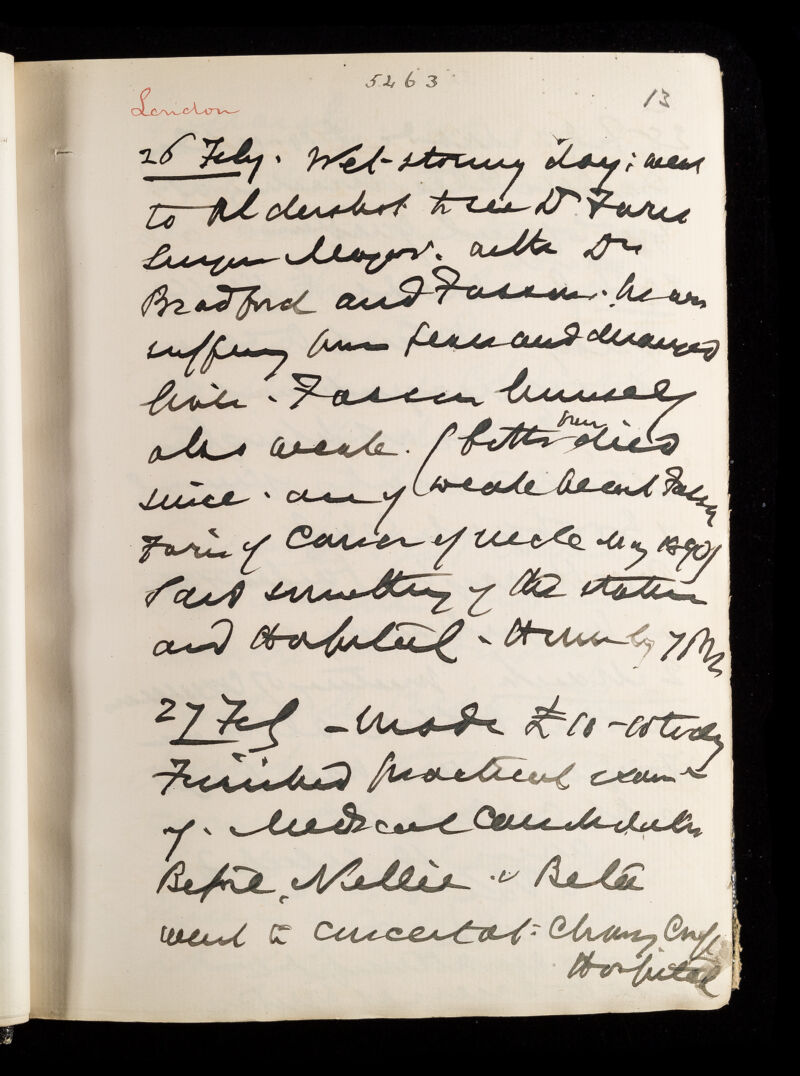 5263
13
London
26 Feby. Wet-stormy day: went
to Aldershot to see Dr Faris
Surgeon Major. with Drs
Bradford and Fasson. he was
suffering from and deranged
liver. Fasson himself
also weak. (both have died
since. one of weak heart Fasson
Faris of Cancer of May 1890)
Saw something of the station
and Hospital - Home by 7 PM
27 Feby - Made £10-10 today
Finished practical exam
of. Medical Candidates
Before, Nellie & Beta
went to concert at: Charing Cross
Hospital